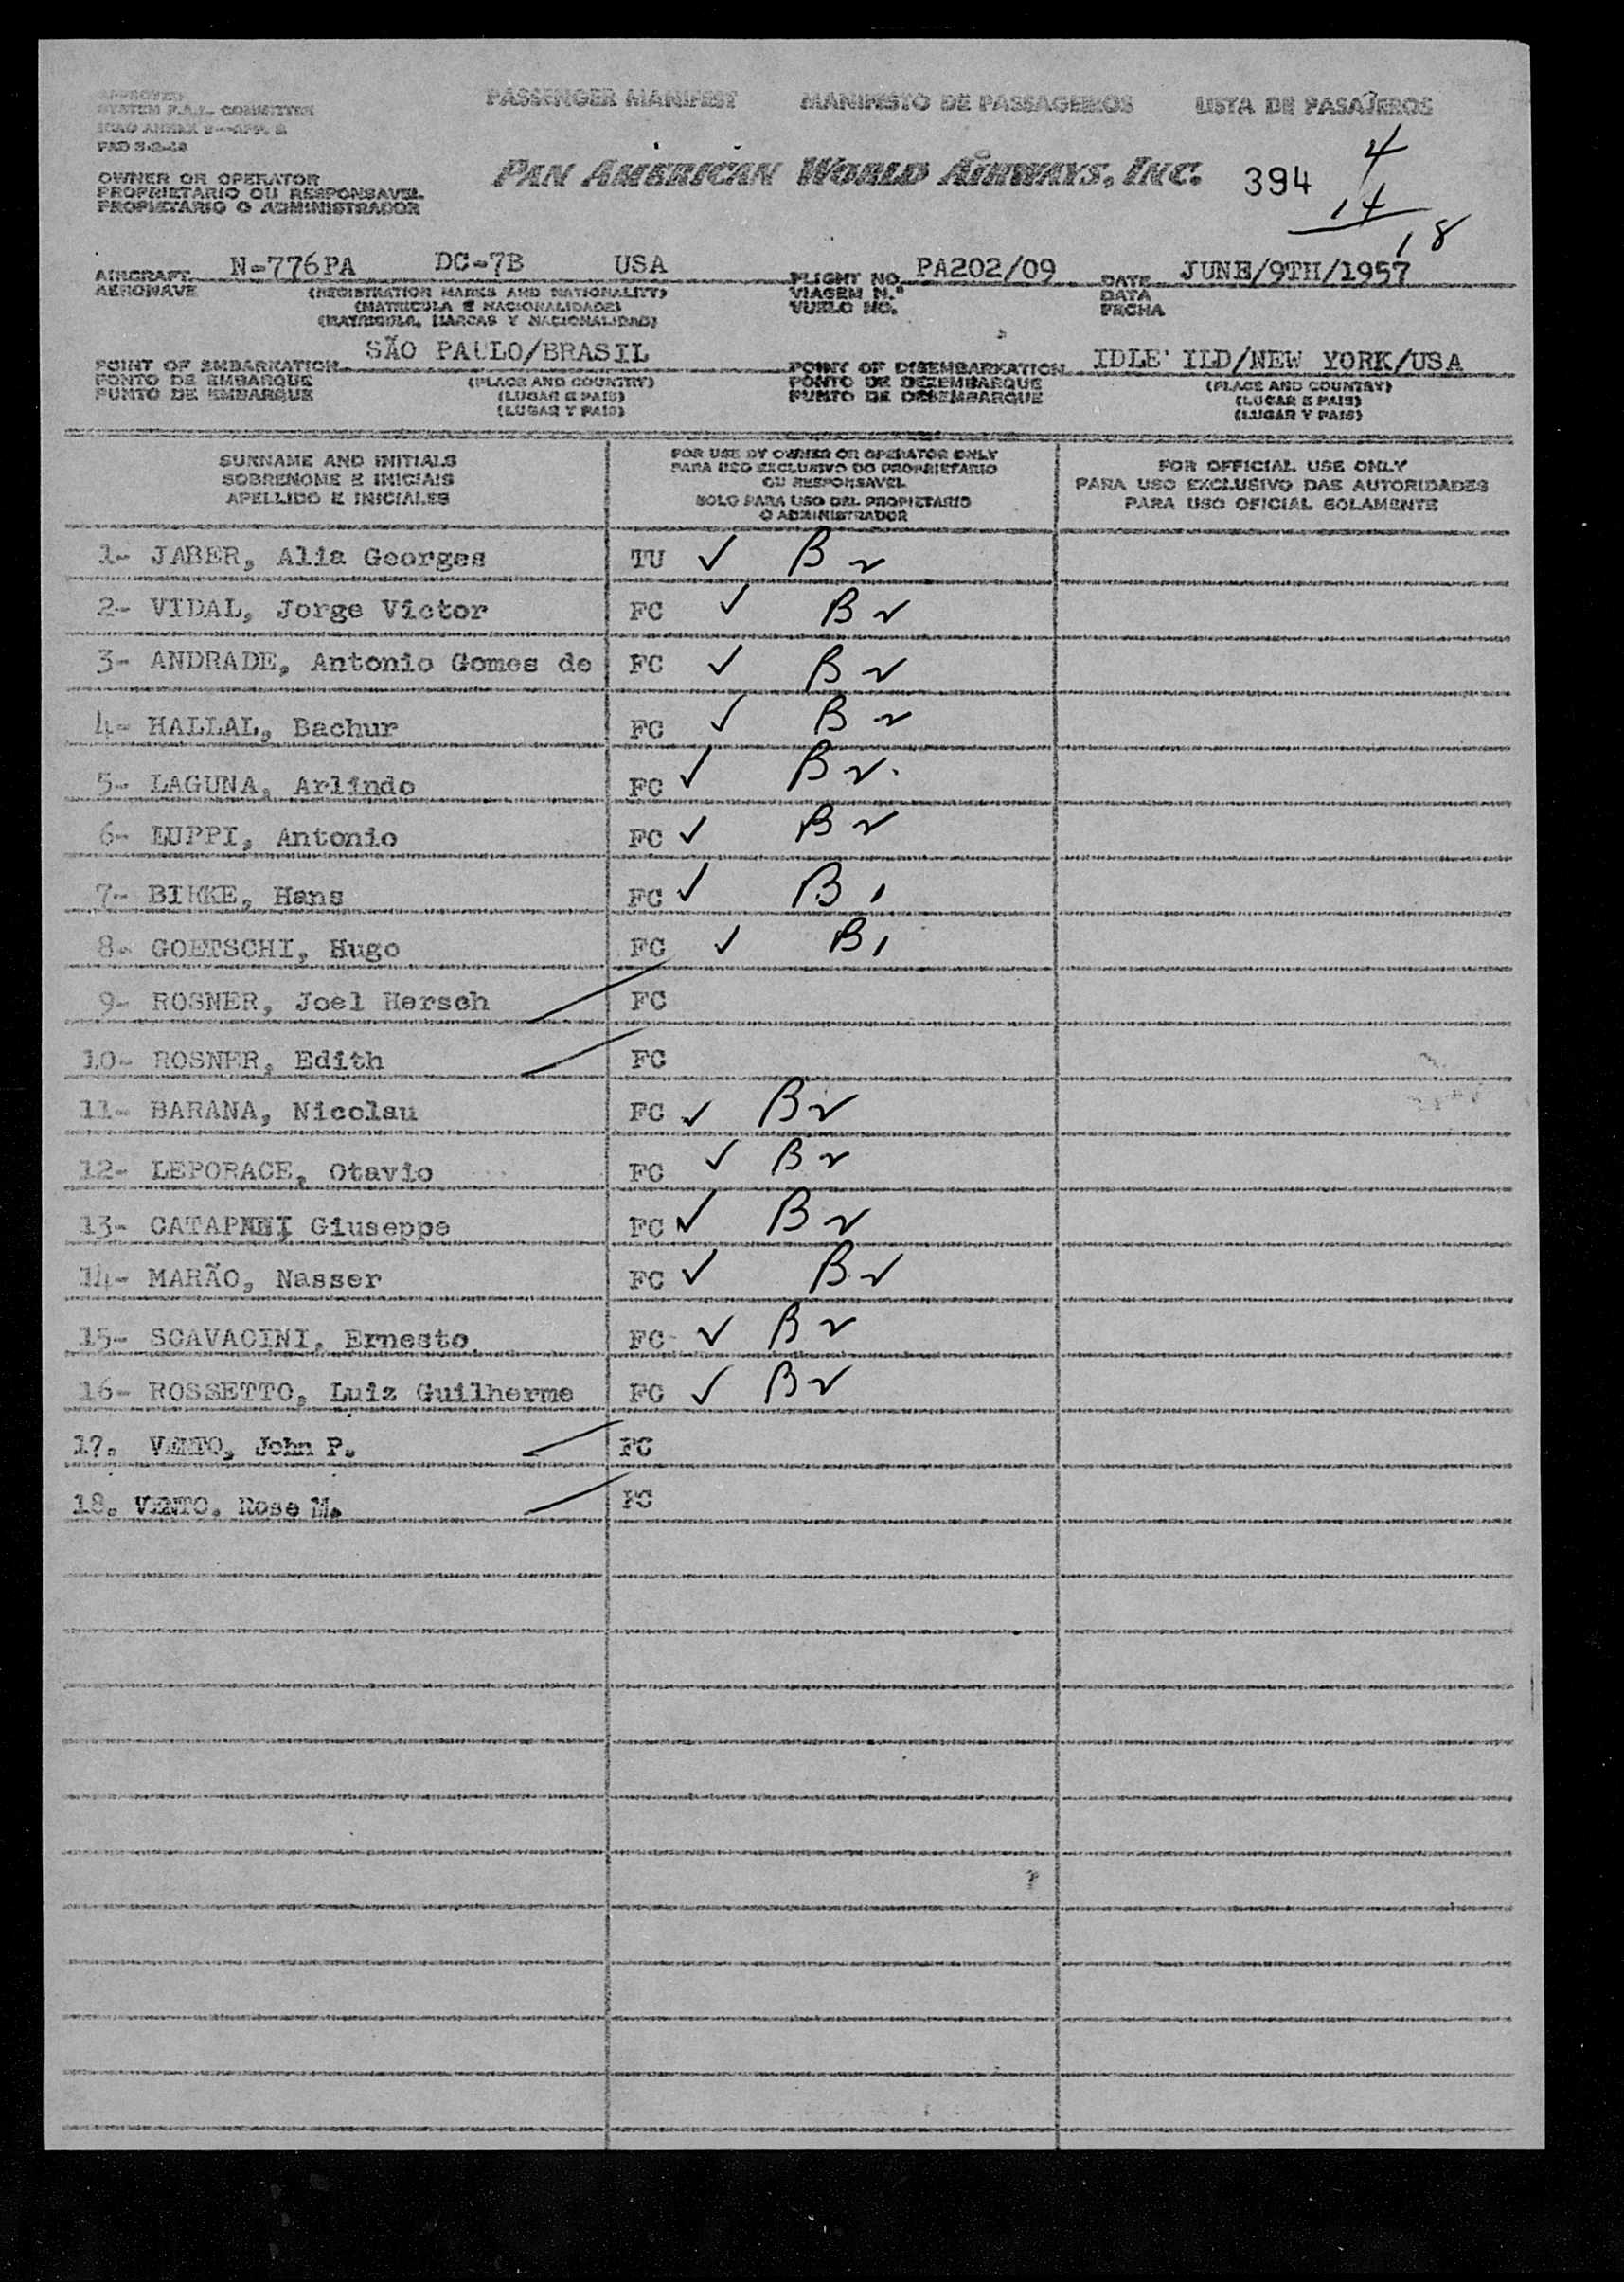 APPROVED
SYSTEM F.A.L. COMMITTEE
ICAO ANNEX 9—APP. 2
PASSENGER MANIFEST MANIFESTO DE PASSAGEIROS LISTA DE PASAJEROS
OWNER OR OPERATOR
PROPRIETARIO OU RESPONSAVEL
PROPIETARIO O ADMINISTRADOR
PAN AMERICAN WORLD AIRWAYS, INC. 394
4
14
18
AIRCRAFT N-776PA DC-7B USA FLIGHT NO. PA202/09 DATE JUNE/9TH/1957
AERONAVE (REGISTRATION MARKS AND NATIONALITY) VIAGEM N.º DATA
(MATRICULA E NACIONALIDADE) VUELO NO. FECHA
(MATRICULA, MARCAS Y NACIONALIDAD)
POINT OF EMBARKATION SÃO PAULO/BRASIL POINT OF DISEMBARKATION IDLE' ILD/NEW YORK/USA
PONTO DE EMBARQUE (PLACE AND COUNTRY) PONTO DE DEZEMBARQUE (PLACE AND COUNTRY)
PUNTO DE EMBARQUE (LUGAR E PAIS) PUNTO DE DESEMBARQUE (LUGAR E PAIS)
(LUGAR Y PAIS) (LUGAR Y PAIS)
SURNAME AND INITIALS
SOBRENOME E INICIAIS
APELLIDO E INICIALES
FOR USE BY OWNER OR OPERATOR ONLY
PARA USO EXCLUSIVO DO PROPRIETARIO
OU RESPONSAVEL
SOLO PARA USO DEL PROPIETARIO
O ADMINISTRADOR
FOR OFFICIAL USE ONLY
PARA USO EXCLUSIVO DAS AUTORIDADES
PARA USO OFICIAL SOLAMENTE
1- JABER, Alia Georges TU ✓ Br
2- VIDAL, Jorge Victor FC ✓ Br
3- ANDRADE, Antonio Gomes de FC ✓ Br
4- HALLAL, Bachur FC ✓ Br
5- LAGUNA, Arlindo FC ✓ Br.
6- LUPPI, Antonio FC ✓ Br
7- Hans FC ✓ B,
8- GOETSCHI, Hugo FC ✓ B,
9- ROSNER, Joel Hersch FC
10- ROSNER, Edith FC
11- BARANA, Nicolau FC ✓ Br
12- LEPORACE, Otavio FC ✓ Br
13- Giuseppe FC ✓ Br
14- MARÃO, Nasser FC ✓ Br
15- SCAVACINI, Ernesto FC ✓ Br
16- ROSSETTO, Luiz Guilherme FC ✓ Br
17. John P. FC
18. Rose M. FC